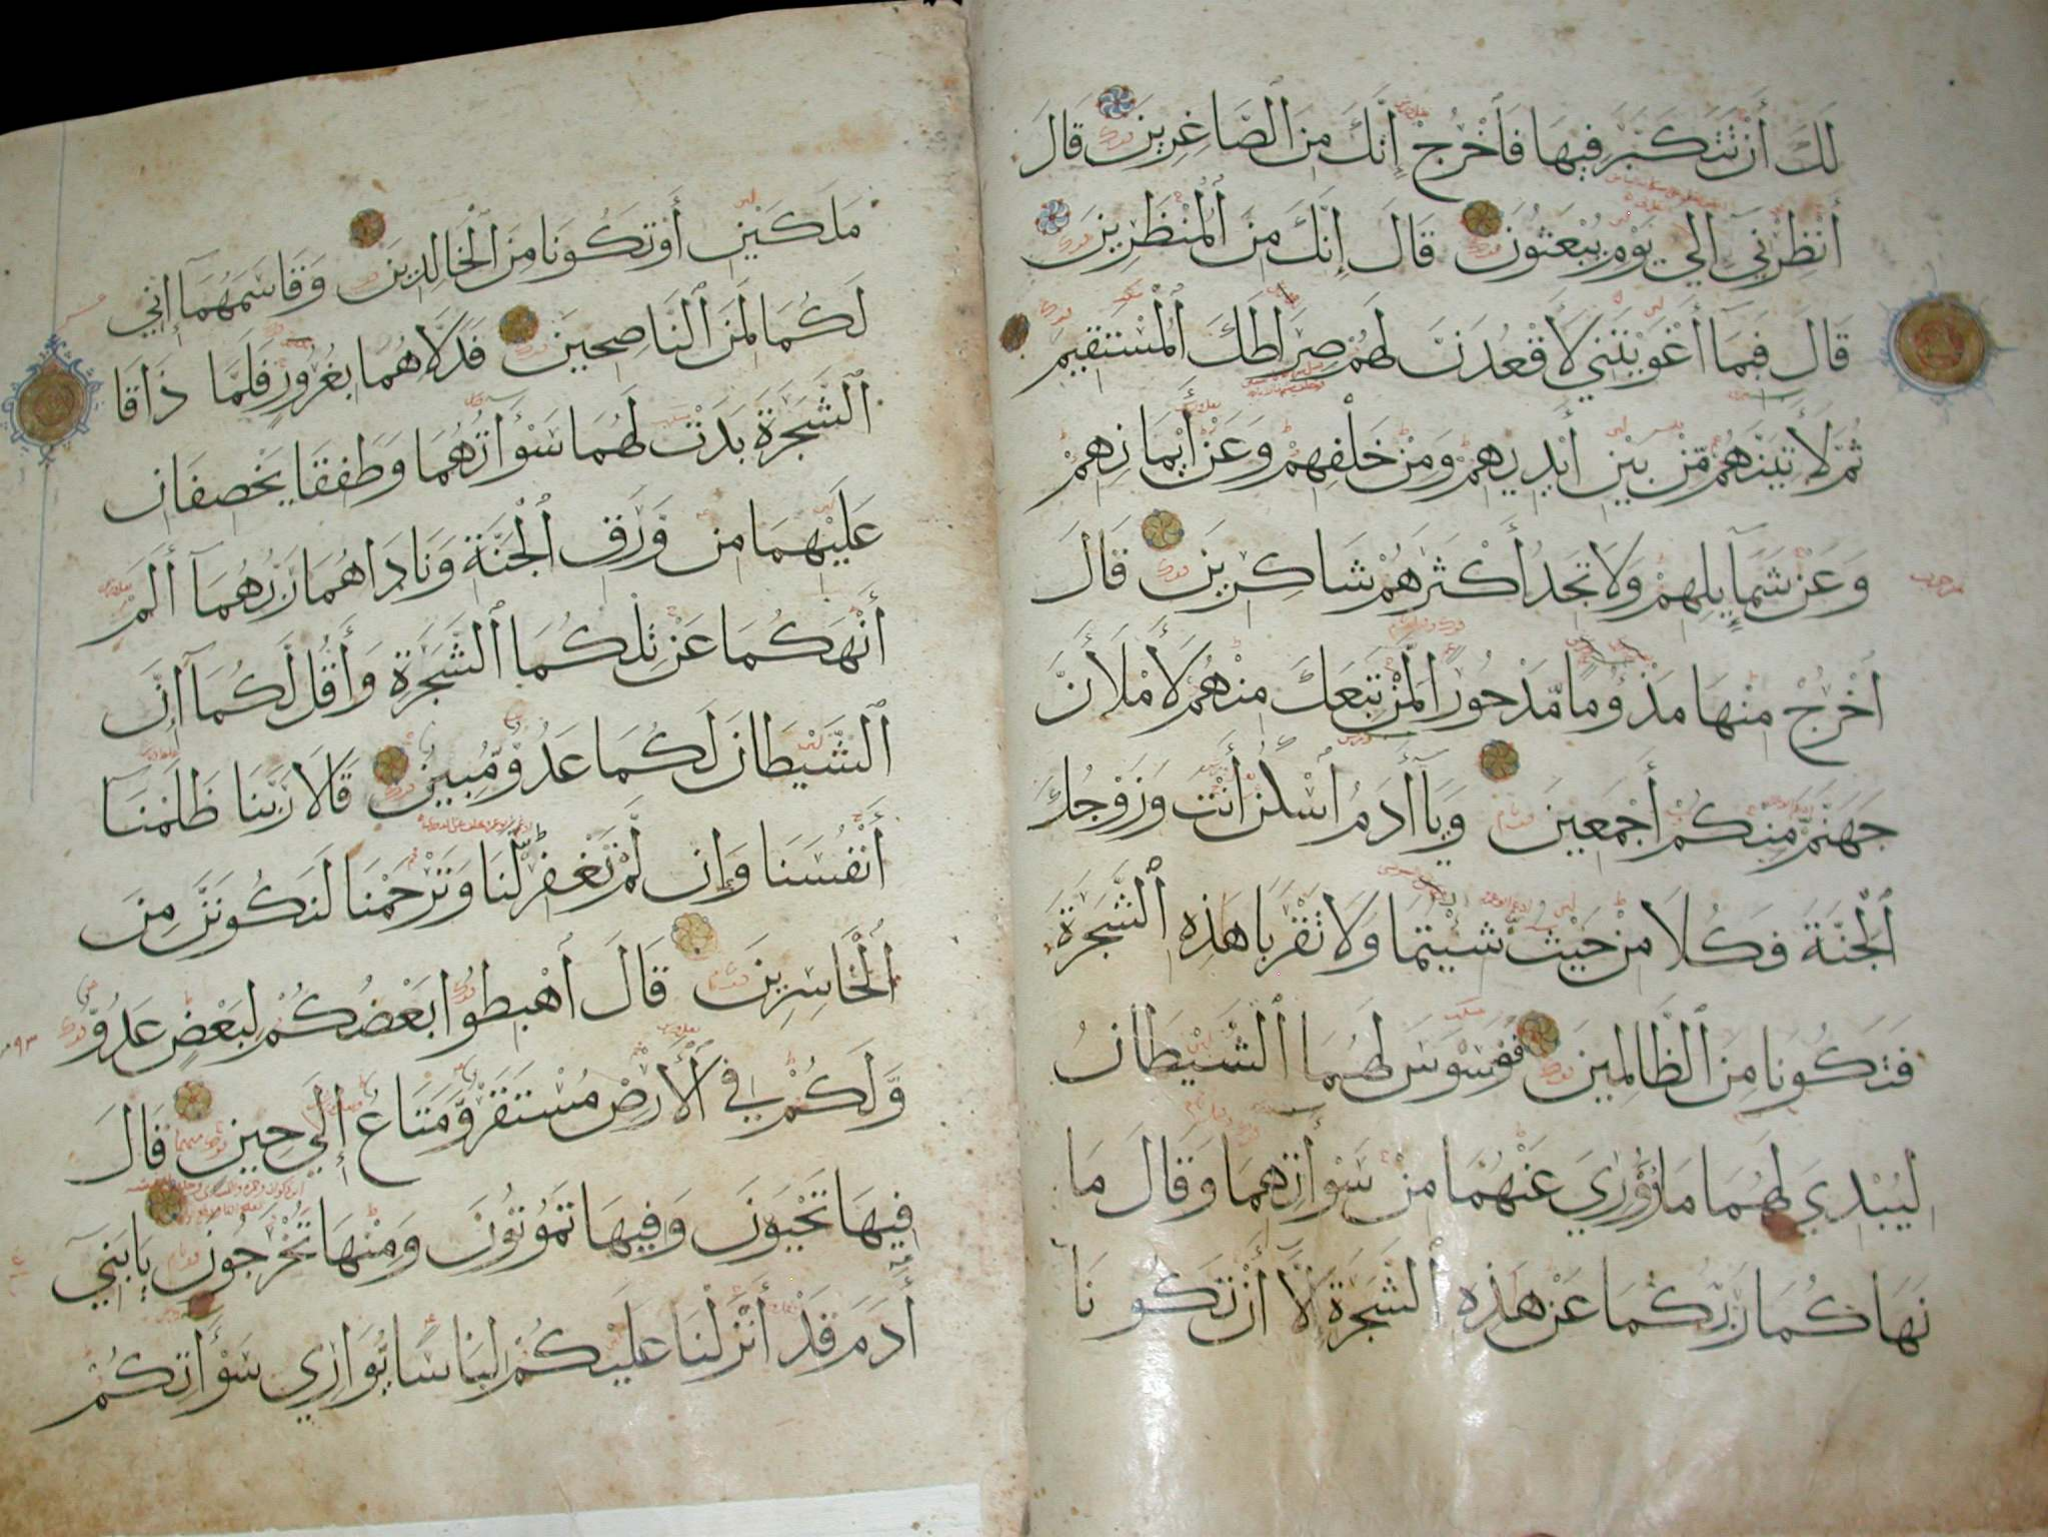 لَكَ أَنْ تَتَكَبَّرَ فِيهَا فَٱخْرُجْ إِنَّكَ مِنَ ٱلصَّاغِرِينَ قَالَ
أَنْظِرْنِي إِلَى يَوْمِ يُبْعَثُونَ قَالَ إِنَّكَ مِنَ ٱلْمُنْظَرِينَ
قَالَ فَبِمَا أَغْوَيْتَنِي لَأَقْعُدَنَّ لَهُمْ صِرَاطَكَ ٱلْمُسْتَقِيمَ
ثُمَّ لَأَتِيَنَّهُمْ مِّنْ بَيْنِ أَيْدِيهِمْ وَمِنْ خَلْفِهِمْ وَعَنْ أَيْمَانِهِمْ
وَعَنْ شَمَآئِلِهِمْ وَلَا تَجِدُ أَكْثَرَهُمْ شَاكِرِينَ قَالَ
ٱخْرُجْ مِنْهَا مَذْءُومًا مَّدْحُورًا لَمَنْ تَبِعَكَ مِنْهُمْ لَأَمْلَأَنَّ
جَهَنَّمَ مِنكُمْ أَجْمَعِينَ وَيَآأَدَمُ ٱسْكُنْ أَنْتَ وَزَوْجُكَ
ٱلْجَنَّةَ فَكُلَا مِنْ حَيْثُ شِيْتُمَا وَلَا تَقْرَبَا هَذِهِ ٱلشَّجَرَةَ
فَتَكُونَا مِنَ ٱلظَّالِمِينَ فَوَسْوَسَ لَهُمَا ٱلشَّيْطَانُ
لِيُبْدِيَ لَهُمَا مَا وُورِيَ عَنْهُمَا مِنْ سَوْأَتِهِمَا وَقَالَ مَا
نَهَاكُمَا رَبُّكُمَا عَنْ هَذِهِ ٱلشَّجَرَةِ إِلَّا أَنْ تَكُونَا
مَلَكَيْنِ أَوْ تَكُونَا مِنَ ٱلْخَالِدِينَ وَقَاسَمَهُمَآ إِنِّي
لَكُمَا لَمِنَ ٱلنَّاصِحِينَ فَدَلَّاهُمَا بِغُرُورٍ فَلَمَّا ذَاقَا
ٱلشَّجَرَةَ بَدَتْ لَهُمَا سَوْأَتُهُمَا وَطَفِقَا يَخْصِفَانِ
عَلَيْهِمَا مِنْ وَرَقِ ٱلْجَنَّةِ وَنَادَاهُمَا رَبُّهُمَآ أَلَمْ
أَنْهَكُمَا عَنْ تِلْكُمَا ٱلشَّجَرَةِ وَأَقُل لَّكُمَآ إِنَّ
ٱلشَّيْطَانَ لَكُمَا عَدُوٌّ مُّبِينٌ قَالَا رَبَّنَا ظَلَمْنَآ
أَنْفُسَنَا وَإِن لَّمْ تَغْفِرْ لَنَا وَتَرْحَمْنَا لَنَكُونَنَّ مِنَ
ٱلْخَاسِرِينَ قَالَ ٱهْبِطُوا بَعْضُكُمْ لِبَعْضٍ عَدُوٌّ
وَّلَكُمْ فِي ٱلْأَرْضِ مُسْتَقَرٌّ وَّمَتَاعٌ إِلَى حِينٍ قَالَ
فِيهَا تَحْيَوْنَ وَفِيهَا تَمُوتُونَ وَمِنْهَا تُخْرَجُونَ يَابَنِي
أَدَمَ قَدْ أَنْزَلْنَا عَلَيْكُمْ لِبَاسًا يُّوَارِي سَوْأَتِكُمْ